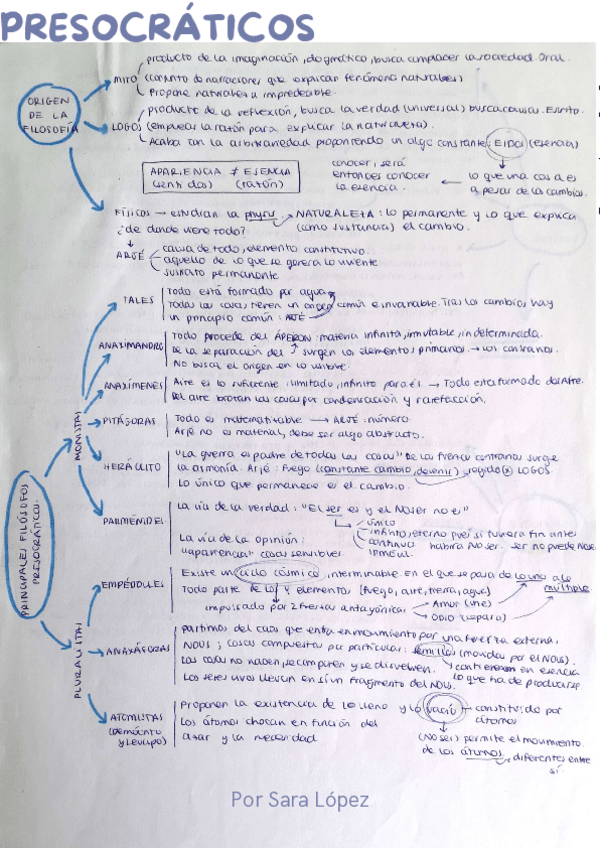 PRESOCRÁTICOS
ORIGEN DE LA FILOSOFÍA
MITO
producto de la imaginación, dogmático, busca complacer la sociedad. Oral.
(conjunto de narraciones que explican fenómenos naturales)
Propone naturaleza impredecible.
LOGOS
producto de la reflexión, busca la verdad (universal) busca causas. Escrito.
(emplear la razón para explicar la naturaleza).
Acaba con la arbitrariedad proponiendo un algo constante: EIDOS (esencia)
APARIENCIA ≠ ESENCIA
(sentidos) (razón)
conocer, será entonces conocer la esencia.
lo que una cosa es a pesar de los cambios.
FÍSICOS → estudian la physis → NATURALEZA: lo permanente y lo que explica
¿de donde viene todo? (como sustancia) el cambio.
ARJÉ
causa de todo, elemento constitutivo.
aquello de lo que se genera lo viviente.
sustrato permanente
PRINCIPALES FILÓSOFOS PRESOCRÁTICOS.
MONISTAS
TALES
Todo está formado por agua
Todas las cosas tienen un origen común e invariable. Tras los cambios, hay
un principio común: ARJÉ
ANAXIMANDRO
Todo procede del ÁPEIRON: materia infinita, inmutable, indeterminada.
De la separación del surgen los elementos primarios → los contrarios.
No busca el origen en lo visible.
ANAXÍMENES
Aire es lo suficiente ilimitado, infinito para él → Todo esta formado del Aire.
Del aire brotan las cosas por condensación y rarefacción.
PITÁGORAS
Todo es matematizable → ARJÉ: número
Arjé no es material, debe ser algo abstracto.
HERÁCLITO
"La guerra es padre de todas las cosas" De las fuerzas contrarias surge
la armonía. Arjé: fuego (constante cambio, devenir), regido (x) LOGOS.
Lo único que permanece es el cambio.
PARMÉNIDES
La vía de la verdad: "El ser es y el No ser no es"
único
infinito, eterno pues si tuviera fin antes
continuo habría No ser. Ser no puede No se
inmóvil.
La vía de la opinión:
"apariencia" cosas sensibles
PLURALISTAS
EMPÉDOCLES
Existe un ciclo cósmico, interminable. En el que se pasa de lo uno a lo múltiple
Todo parte de los 4 elementos (fuego, aire, tierra, agua)
impulsado por 2 fuerzas antagónicas
Amor (une)
Odio (separa)
ANAXÁGORAS
partimos del caos que entra en movimiento por una fuerza externa,
NOUS; cosas compuestas por partículas: semillas (movidas por el NOUS).
Las cosas no nacen, se componen y se disuelven.
contienen en esencia lo que ha de producirse
Los seres vivos llevan en sí un fragmento del NOUS.
ATOMISTAS
(Demócrito y Leucipo)
Proponen la existencia de lo lleno y lo vacío — constituido por átomos
Los átomos chocan en función del
azar y la necesidad
(No ser) permite el movimiento
de los átomos → diferentes entre sí
Por Sara López